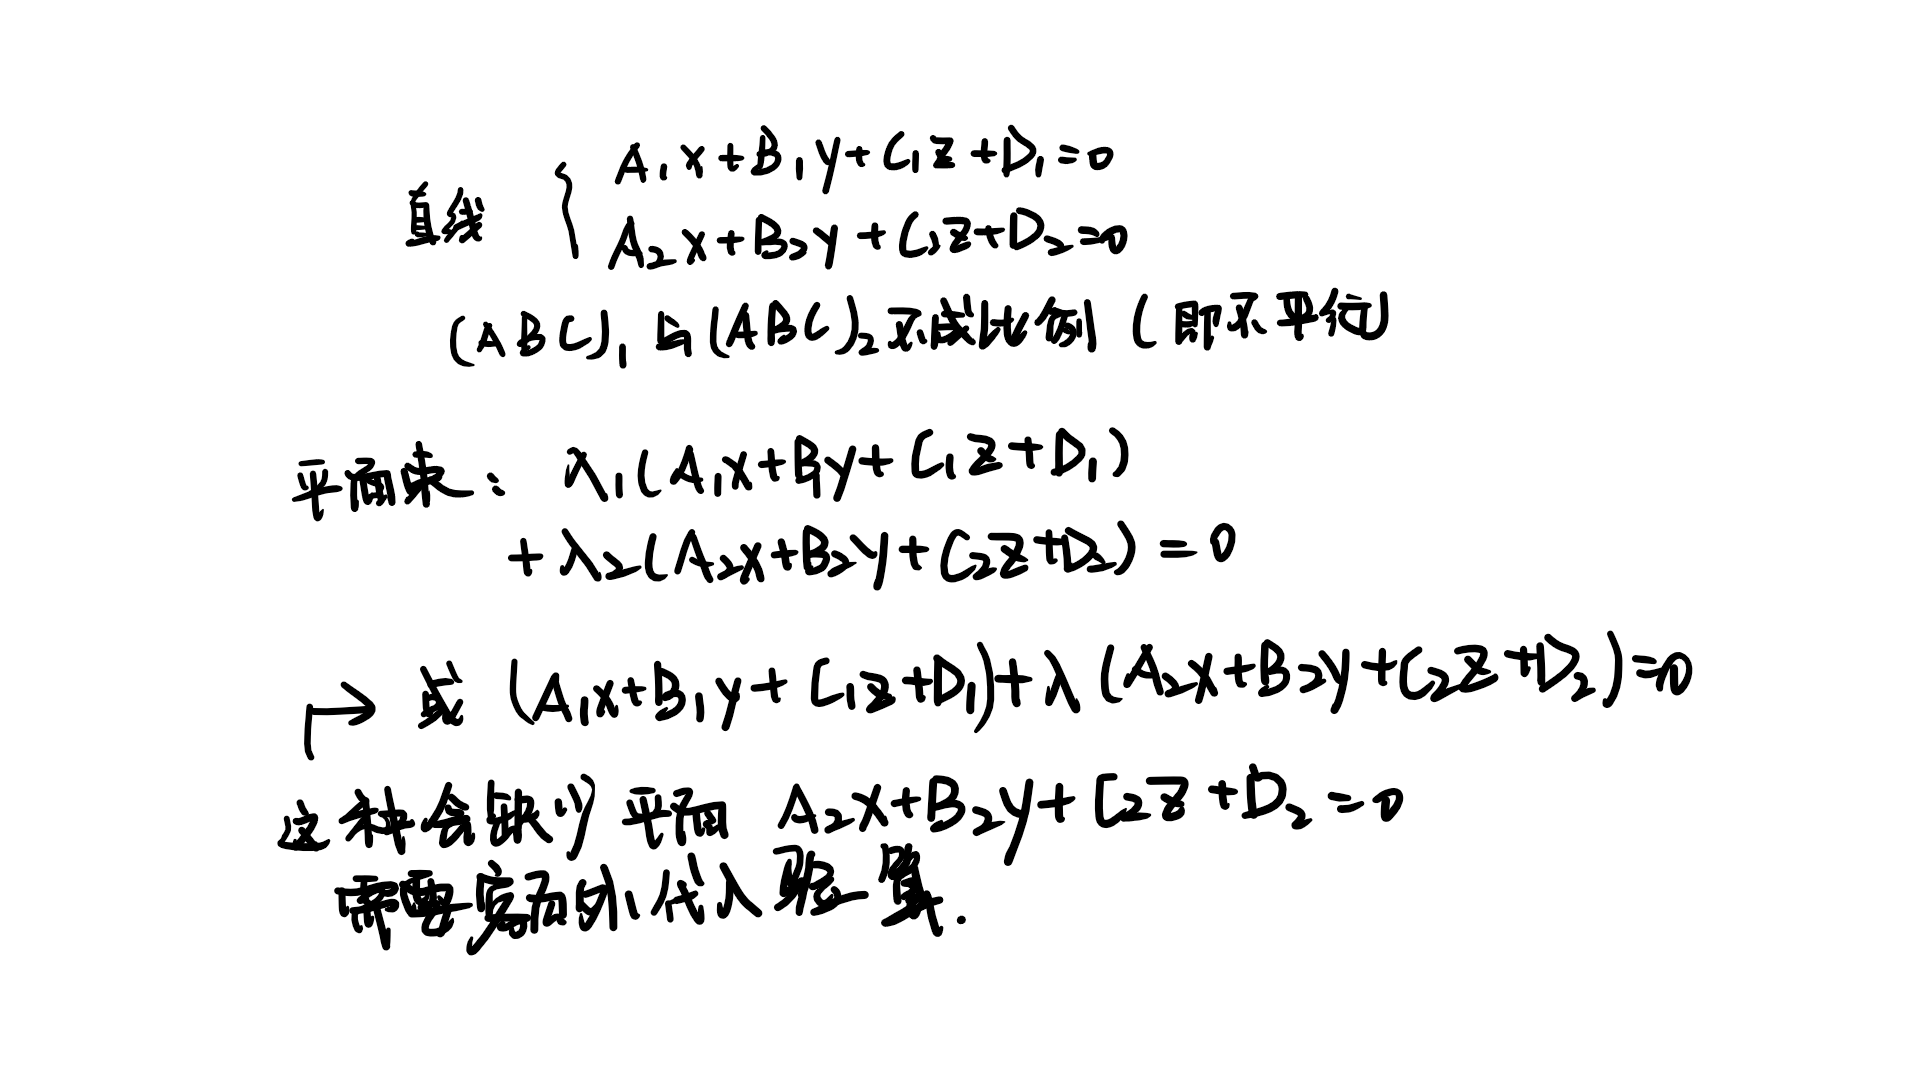 直线 { A₁x+B₁y+C₁z+D₁=0
A₂x+B₂y+C₂z+D₂=0
(ABC)₁与(ABC)₂不成比例(即不平行)
平面束: λ₁(A₁x+B₁y+C₁z+D₁)
+λ₂(A₂x+B₂y+C₂z+D₂)=0
→ 或 (A₁x+B₁y+C₁z+D₁)+λ(A₂x+B₂y+C₂z+D₂)=0
这种会缺少平面 A₂x+B₂y+C₂z+D₂=0
需要额外代入验算.